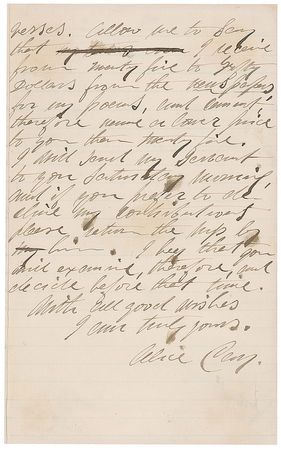 verses. Allow me to say
that I receive
from twenty five to fifty
Dollars from the newspapers
for my poems, and cannot,
therefore name a lower price
to you than twenty five.
I will send my servant
to you Saturday morning,
and if you prefer to de-
cline my contributions
please return the mss by
him. I beg that you
will examine, therefore, and
decide before that time.
With all good wishes
I am truly yours.
Alice Cary.